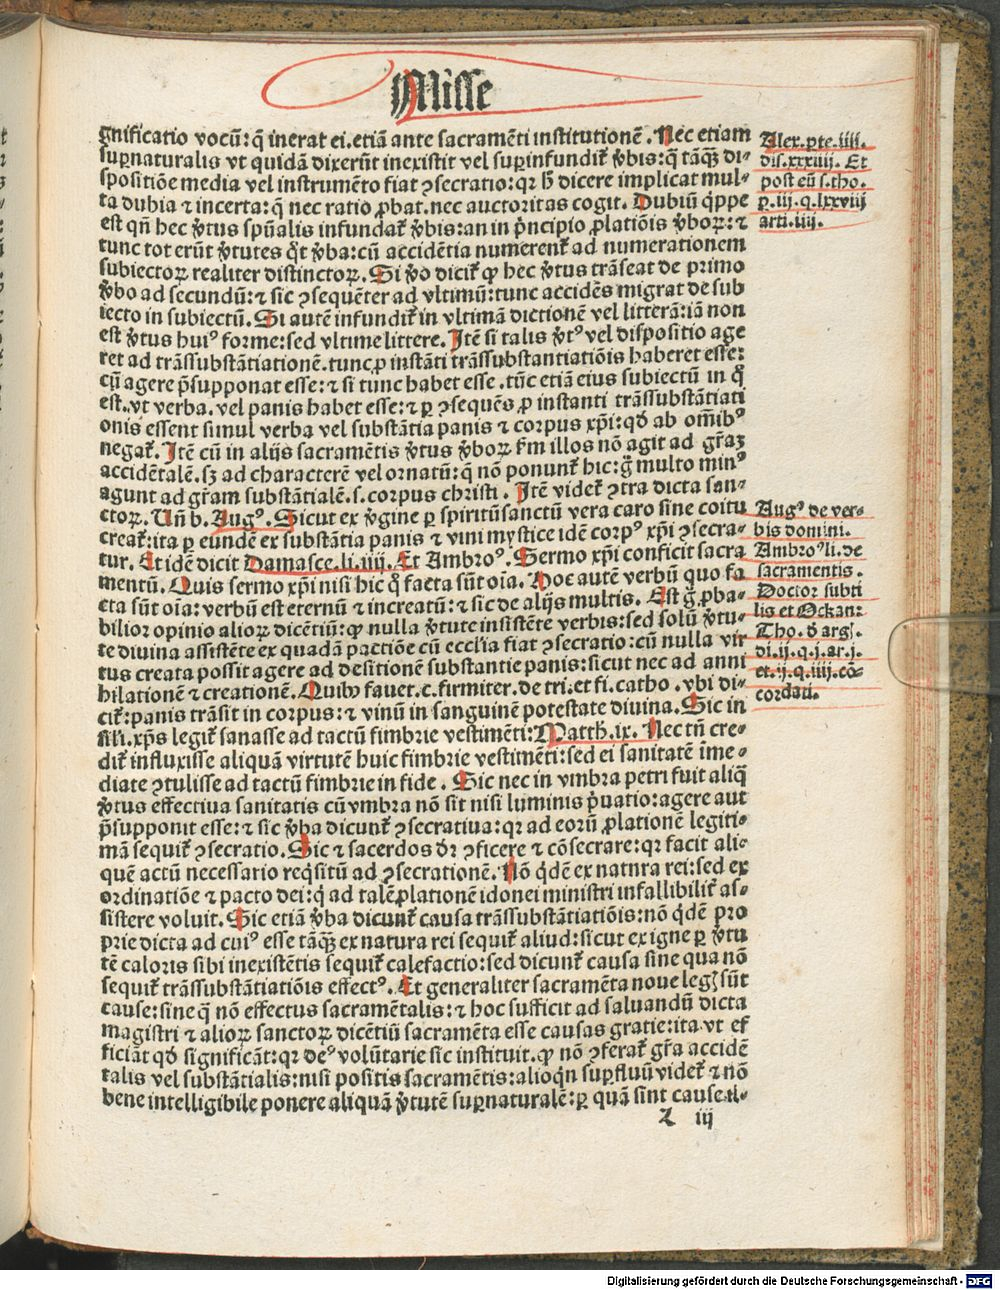 Misse
gnificatio vocū: q̄ inerat ei. etiā ante sacramēti institutionē. Nec etiam
suꝑnaturalis vt quidā dixerūt inexistit vel suꝑinfundit᷑ v̓bis: q̄ tāqꝫ di⸗
spositiōe media vel instrumēto fiat ꝯsecratio: qꝛ hͦ dicere implicat mul⸗
ta dubia ⁊ incerta: q̄ nec ratio ꝓbat. nec auctoritas cogit. Dubiū q̇ppe
est qn̄ hec v̓tus spūalis infundat᷑ v̓bis: an in pͥncipio ꝓlatiōis v̓boꝝ: ⁊
tunc tot erūt v̓tutes qͦt v̓ba: cū accidētia numerent᷑ ad numerationem
subiectoꝝ realiter distinctoꝝ. Si v̓o dicit᷑ ꝙ hec v̓tus trāseat de primo
v̓bo ad secundū: ⁊ sic ꝯsequēter ad vltimū: tunc accidēs migrat de sub
iecto in subiectū. Si autē infundit᷑ in vltimā dictionē vel litterā: iā non
est v̓tus huiꝰ forme: sed vltime littere. Itē si talis v̓tꝰ vel dispositio age
ret ad trāssubstātiationē. tunc ꝓ instāti trāssubstantiatiōis haberet esse:
cū agere p̄supponat esse: ⁊ si tunc habet esse. tūc etiā eius subiectū in q̊
est. vt verba. vel panis habet esse: ⁊ ꝑ ꝯsequēs ꝓ instanti trāssubstātiati
onis essent simul verba vel substātia panis ⁊ corpus xp̄i: qd̓ ab om̄ibꝰ
negat᷑. Itē cū in alijs sacramētis v̓tus v̓boꝝ ẜm illos nō agit ad gr̄aꝫ
accidētalē. sꝫ ad characterē vel ornatū: q̄ nō ponunt᷑ hic: g̊ multo minꝰ
agunt ad gr̄am substātialē. s. corpus christi. Itē videt᷑ ꝯtra dicta san⸗
ctoꝝ. Vn̄ b. Augꝰ. Sicut ex v̓gine ꝑ spiritū sanctū vera caro sine coitu
creat᷑: ita ꝑ eundē ex substātia panis ⁊ vini mystice idē corpꝰ xp̄i ꝯsecra⸗
tur. Et idē dicit Damasce. li. iiij. Et Ambroꝰ. Sermo xp̄i conficit sacra
mentū. Quis sermo xp̄i nisi hic q̊ facta sūt oīa. Hoc autē verbū quo fa
cta sūt oīa: verbū est eternū ⁊ increatū: ⁊ sic de alijs multis. Est g̊ ꝓba⸗
bilior opinio alioꝝ dicētiū: ꝙ nulla v̓tute insistēte verbis: sed solū v̓tu⸗
te diuina assistēte ex quadā pactiōe cū eccl̓ia fiat ꝯsecratio: cū nulla vir
tus creata possit agere ad desitionē substantie panis: sicut nec ad anni
hilationē ⁊ creationē. Quibꝰ fauet. c. firmiter. de tri. et fi. catho. vbi di⸗
cit᷑: panis trāsit in corpus: ⁊ vinū in sanguinē potestate diuina. Sic in
sil̓i. xp̄s legit᷑ sanasse ad tactū fimbrie vestimēti: Matth. ix. Nec tn̄ cre⸗
dit᷑ influxisse aliquā virtutē huic fimbrie vestimēti: sed ei sanitatē īme⸗
diate ꝯtulisse ad tactū fimbrie in fide. Sic nec in vmbra petri fuit aliq̄
v̓tus effectiua sanitatis cū vmbra nō sit nisi luminis pͥuatio: agere aut
p̄supponit esse: ⁊ sic v̓ba dicunt᷑ ꝯsecratiua: qꝛ ad eorū ꝓlationē legiti⸗
mā sequit᷑ ꝯsecratio. Sic ⁊ sacerdos dr̄ ꝯficere ⁊ cōsecrare: qꝛ facit ali⸗
quē actū necessario reqͥsitū ad ꝯsecrationē. Nō qͥdē ex natura rei: sed ex
ordinatiōe ⁊ pacto dei: qͥ ad talē ꝓlationē idonei ministri infallibilit᷑ as⸗
sistere voluit. Sic etiā v̓ba dicunt᷑ causa trāssubstātiatiōis: nō qͥdē pro
prie dicta ad cuiꝰ esse tāqꝫ ex natura rei sequit᷑ aliud: sicut ex igne ꝑ v̓tu
tē caloris sibi inexistētis sequit᷑ calefactio: sed dicunt᷑ causa sine qua nō
sequit᷑ trāssubstātiatiōis effectꝰ. Et generaliter sacramēta noue legꝭ sūt
cause: sine q̄ nō effectus sacramētalis: ⁊ hoc sufficit ad saluandū dicta
magistri ⁊ alioꝝ sanctoꝝ dicētiū sacramēta esse causas gratie: ita vt ef
ficiāt qd̓ significāt: qꝛ deꝰ volūtarie sic instituit. ꝙ nō ꝯferat᷑ gr̄a accidē
talis vel substātialis: nisi positis sacramētis: alioqͥn suꝑfluū videt᷑ ⁊ nō
bene intelligibile ponere aliquā v̓tutē suꝑnaturalē: ꝑ quā sint cause il⸗
Z iij
Alex. ꝑte. iiij.
dis. xxxiiij. Et
post eū s. tho.
p. iij. q. lxxviij
arti. iiij.
Augꝰ de ver⸗
bis domini.
Ambroꝰ li. de
sacramentis.
Doctor subti
lis et Ockan:
Tho. d̓ argꝭ.
di. ij. q. j. ar. j.
et. ij. q. iiij. cō⸗
cordati.
Digitalisierung gefördert durch die Deutsche Forschungsgemeinschaft - DFG